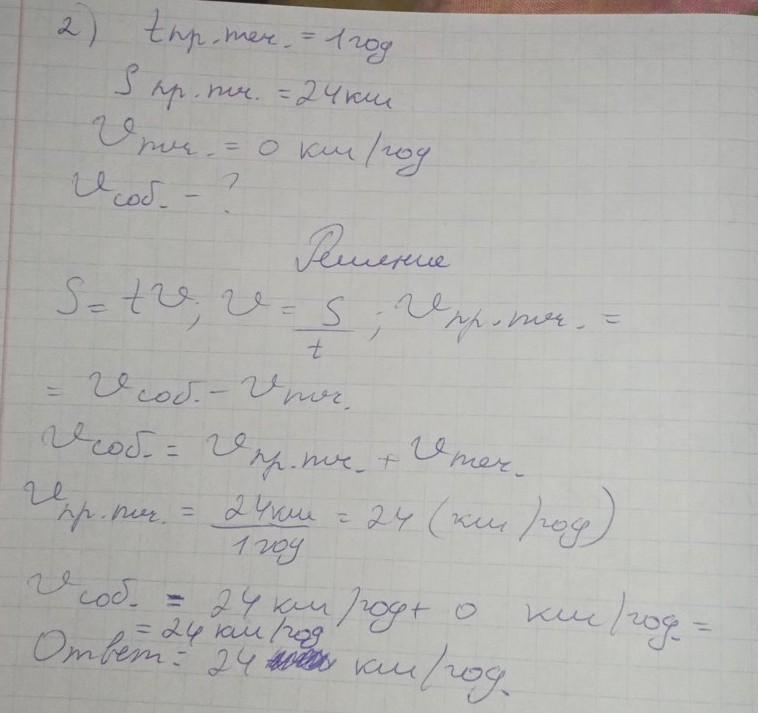 2) tпр.теч. = 1год
Sпр.теч. = 24км
Vтеч. = 0 км/год
Vсоб. - ?
Решение
S = tV; V = S/t; Vпр.теч. =
= Vсоб. - Vтеч.
Vсоб. = Vпр.теч. + Vтеч.
Vпр.теч. = 24км/1год = 24 (км/год)
Vсоб. = 24 км/год + 0 км/год. =
= 24 км/год
Ответ: 24 км/год.